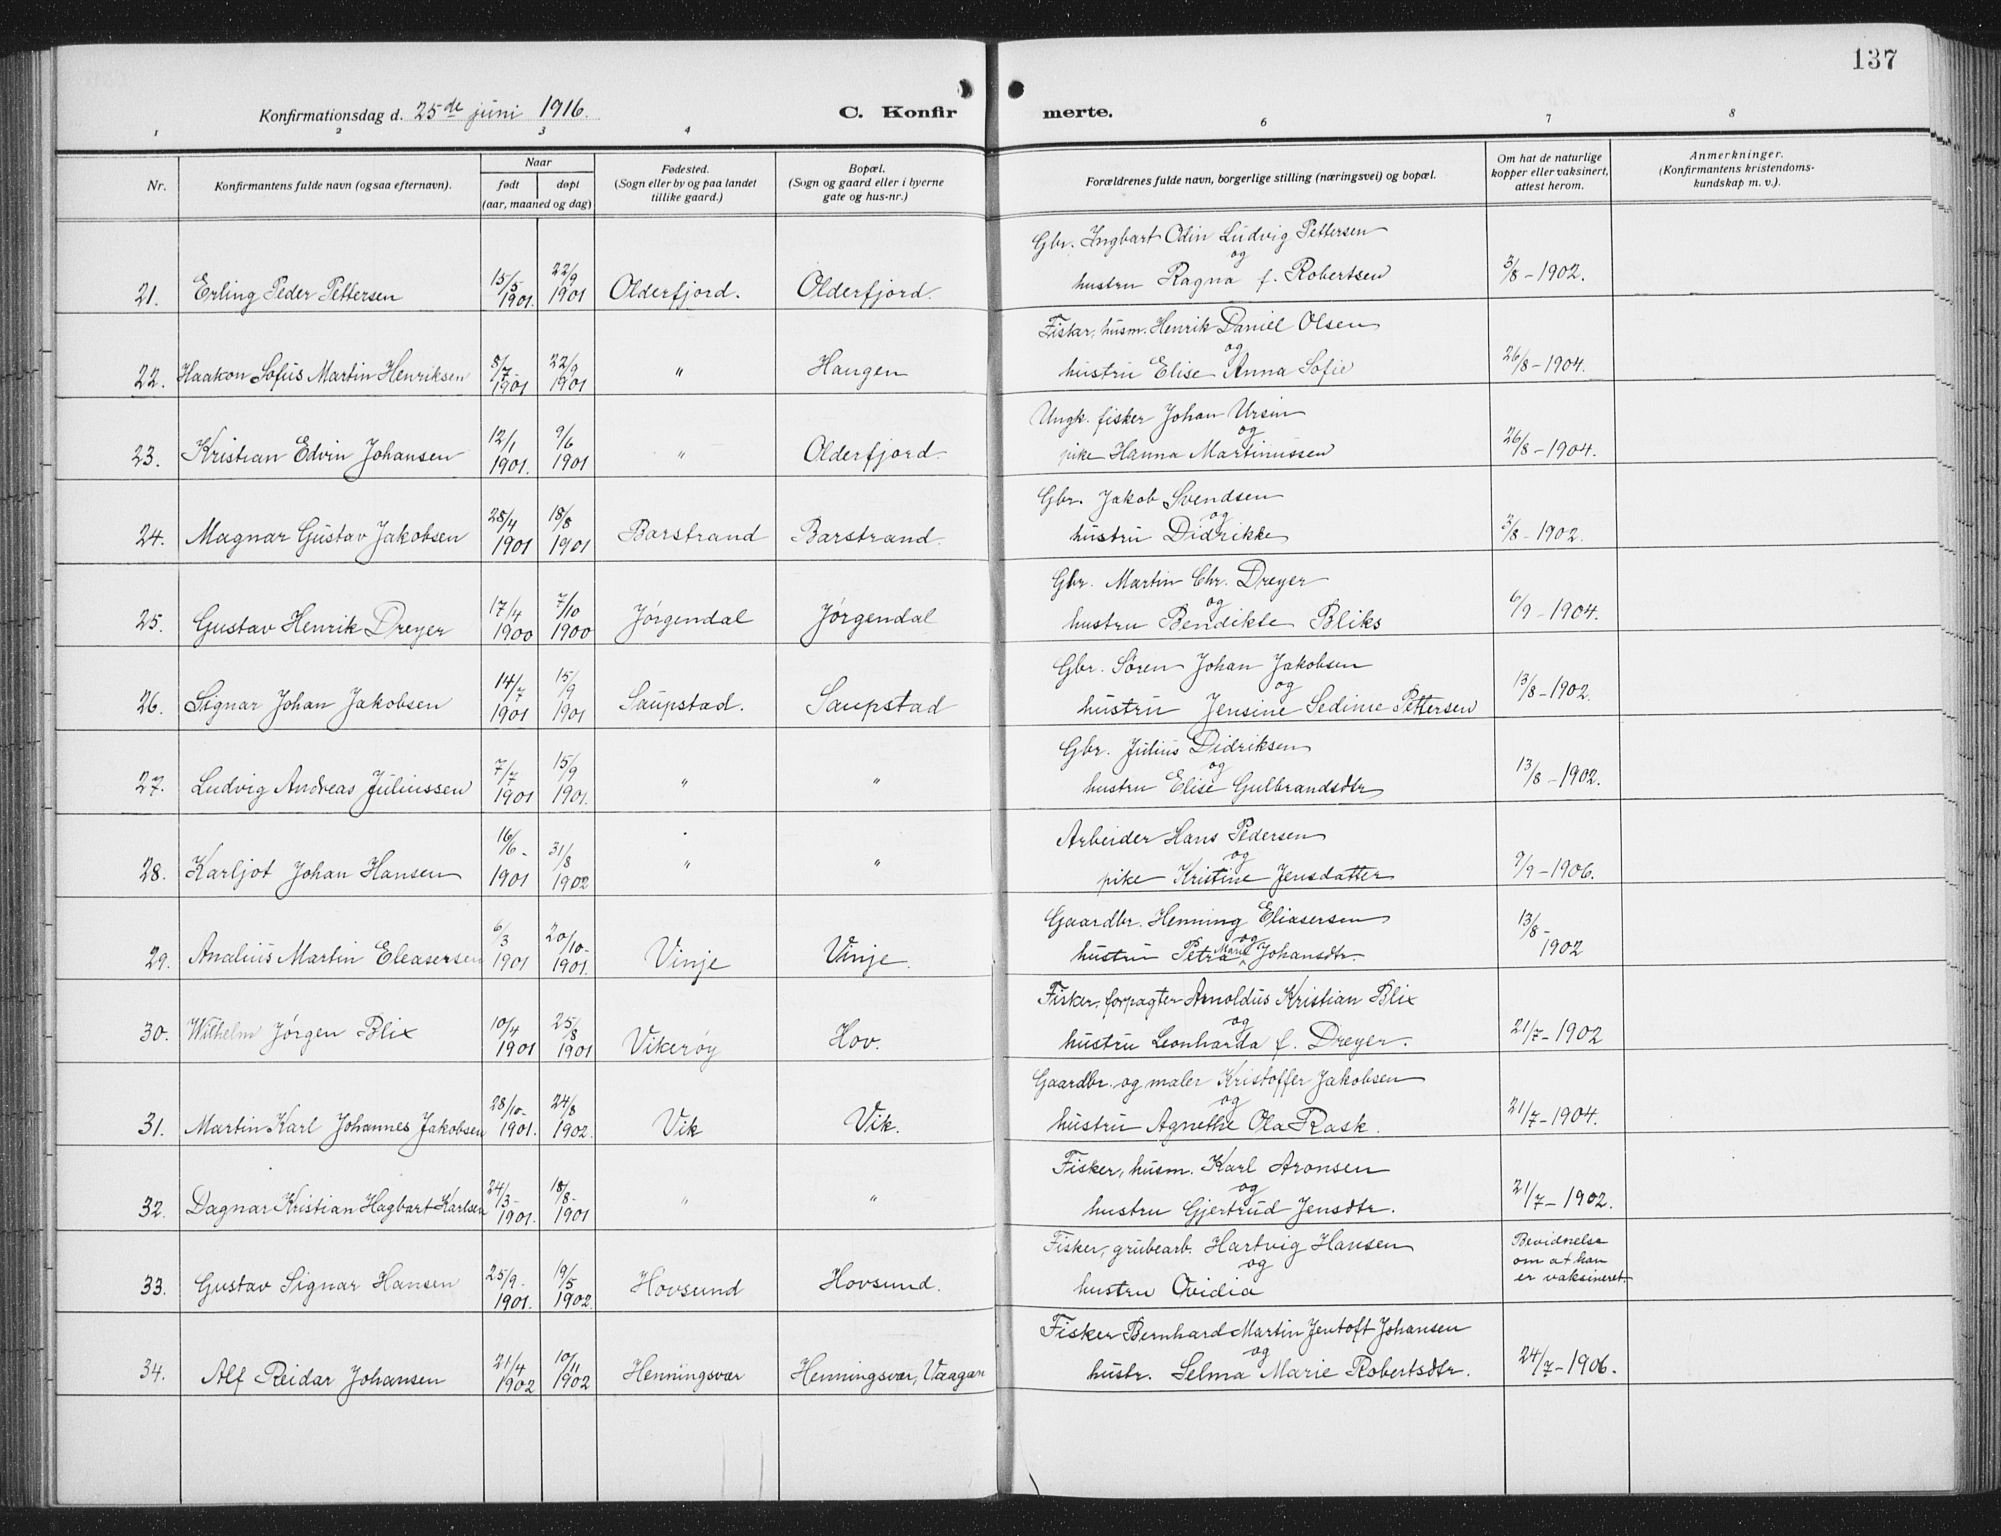 137
Konfirmationsdag d. 25de juni 1916.
C. Konfirmerte.
1 2 3 4 6 7 8
Nr.
Konfirmantens fulde navn (ogsaa efternavn).
Naar
født døpt
(aar, maaned og dag)
Fødested.
(Sogn eller by og paa landet
tillike gaard.)
Bopæl.
(Sogn og gaard eller i byerne
gate og hus-nr.)
Forældrenes fulde navn, borgerlige stilling (næringsvei) og bopæl.
Om hat de naturlige
kopper eller vaksinert,
attest herom.
Anmerkninger.
(Konfirmantens kristendoms-
kundskap m. v.).
21. Erling Peder Pettersen 15/5 1901. 22/9 1901 Olderfjord. Olderfjord.
Gbr. Ingbart Odin Ludvig Pettersen
og
hustru Ragna f. Robertsen
3/8 - 1902.
22. Haakon Sofus Martin Henriksen 5/7 - 1901 22/9 1901 " Haugen
Fisker, husm. Henrik Daniel Olsen
og
hustru Elise Anna Sofie
26/8 - 1904.
23. Kristian Edvin Johansen 12/1 1901. 9/6 1901 " Olderfjord
Ungk. fisker Johan Ursin
og
pike Hanna Martinussen
26/8 - 1904.
24. Magnar Gustav Jakobsen 28/4 1901 18/8 1901 Barstrand Barstrand.
Gbr. Jakob Svendsen
og
hustru Didrikke
3/8 - 1902.
25. Gustav Henrik Dreyer 17/4 1900 7/10 1900 Jørgendal Jørgendal
Gbr. Martin Chr. Dreyer
og
hustru Bendikte Bliks
6/9 - 1904.
26. Signar Johan Jakobsen 14/7 1901 15/9 1901 Saupstad. Saupstad
Gbr. Søren Johan Jakobsen
og
hustru Jensine Sedinie Pettersen
13/8 - 1902.
27. Ludvig Andreas Juliussen 7/7 1901 15/9 1901. " "
Gbr. Julius Didriksen
og
hustru Elise Gulbrandsdtr
13/8 - 1902.
28. Karljot Johan Hansen 16/6 - 1901 31/8 1902 " "
Arbeider Hans Pedersen
og
pike Kristine Jensdatter
9/9 - 1906.
29. Analius Martin Eleasersen 6/3 1901 20/10 - 1901. Vinje Vinje.
Gaardbr. Henning Eliasersen
og
hustru Petra Marie Johansdtr.
13/8 - 1902
30. Wilhelm Jørgen Blix 10/4 1901 25/8 1901 Vikerøy Hov.
Fisker, forpagter Arnoldus Kristian Blix
og
hustru Leonharda f. Dreyer.
21/7 - 1902
31. Martin Karl Johannes Jakobsen 28/10 - 1901. 24/8 1902. Vik Vik.
Gaardbr. og maler Kristoffer Jakobsen
og
hustru Agnethe Ola Rask.
21/7 - 1904.
32. Dagnar Kristian Hagbart Karlsen 24/3 - 1901. 18/8 - 1901 " "
Fisker, husm. Karl Aronsen
og
hustru Gjertrud Jensdtr.
21/7 - 1902.
33. Gustav Signar Hansen 25/9 - 1901. 19/5 1902. Hovsund Hovsund.
Fisker, grubearb. Hartvig Hansen
og
hustru Ovidia
Bevidnelse
om at han
er vaksineret
34. Alf Reidar Johansen 21/4 1902 10/11 1902 Henningsvær Henningsvær, Vaagan
Fisker Bernhard Martin Jentoft Johansen
og
hustr. Selma Marie Robertsdtr.
24/7 - 1906.